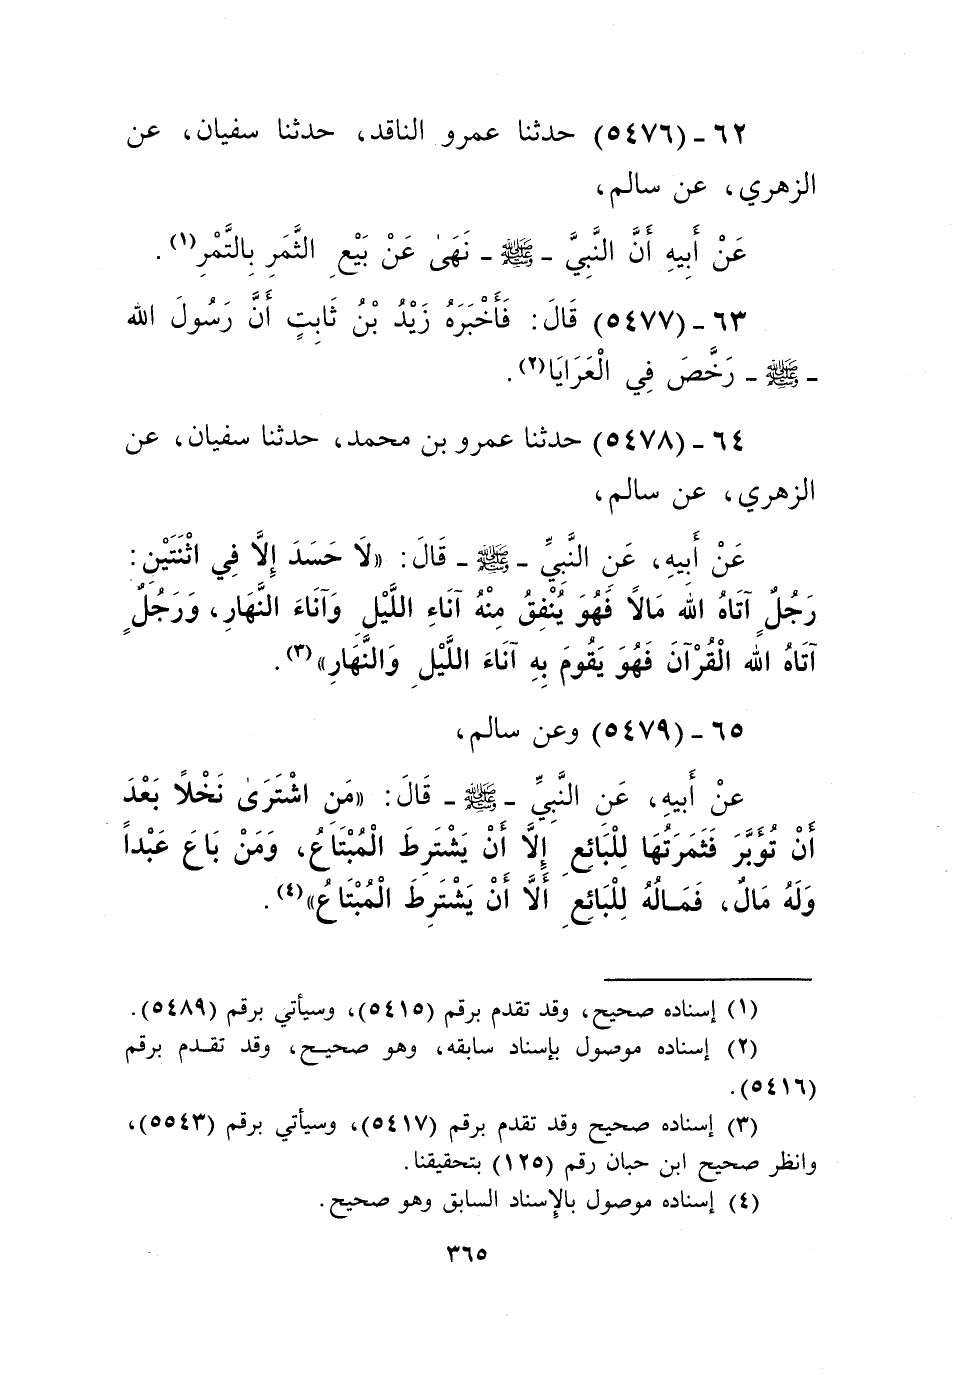 ٦٢ ـ (٥٤٧٦) حدثنا عمرو الناقد، حدثنا سفيان، عن
الزهري، عن سالم،
عَنْ أَبِيهِ أَنَّ النَّبِيَّ ـ ﷺ ـ نَهَىٰ عَنْ بَيْعِ الثَّمَرِ بِالتَّمْرِ(١).
٦٣ ـ (٥٤٧٧) قَالَ: فَأَخْبَرَهُ زَيْدُ بْنُ ثَابِتٍ أَنَّ رَسُولَ الله
ـ ﷺ ـ رَخَّصَ فِي الْعَرَايَا(٢).
٦٤ ـ (٥٤٧٨) حدثنا عمرو بن محمد، حدثنا سفيان، عن
الزهري، عن سالم،
عَنْ أَبِيهِ، عَنِ النَّبِيِّ ـ ﷺ ـ قَالَ: «لَا حَسَدَ إِلَّا فِي اثْنَتَيْنِ:
رَجُلٌ ٍ آتَاهُ الله مَالًا فَهُوَ يُنْفِقُ مِنْهُ آنَاءِ اللَّيْلِ وَآنَاءَ النَّهَارِ، وَرَجُلٌ ٍ
آتَاهُ الله الْقُرْآنَ فَهُوَ يَقُومَ بِهِ آنَاءَ اللَّيْلِ وَالنَّهَارِ»(٣).
٦٥ ـ (٥٤٧٩) وعن سالم،
عنْ أَبيهِ، عَنِ النَّبِيِّ ـ ﷺ ـ قَالَ: «مَنِ اشْتَرَىٰ نَخْلًا بَعْدَ
أَنْ تُؤَبَّرَ فَثَمَرَتُهَا لِلْبَائِعِ إِلَّا أَنْ يَشْتَرِطَ الْمُبْتَاعُ، وَمَنْ بَاعَ عَبْداً
وَلَهُ مَالٌ، فَمَـالُهُ لِلْبَائِعِ أَلَّا أَنْ يَشْتَرِطَ الْمُبْتَاعُ»(٤).
(١) إسناده صحيح، وقد تقدم برقم (٥٤١٥)، وسيأتي برقم (٥٤٨٩).
(٢) إسناده موصول بإسناد سابقه، وهو صحيـح، وقد تقـدم برقم
(٥٤١٦).
(٣) إسناده صحيح وقد تقدم برقم (٥٤١٧)، وسيأتي برقم (٥٥٤٣)،
وانظر صحيح ابن حبان رقم (١٢٥) بتحقيقنا.
(٤) إسناده موصول بالإسناد السابق وهو صحيح.
٣٦٥